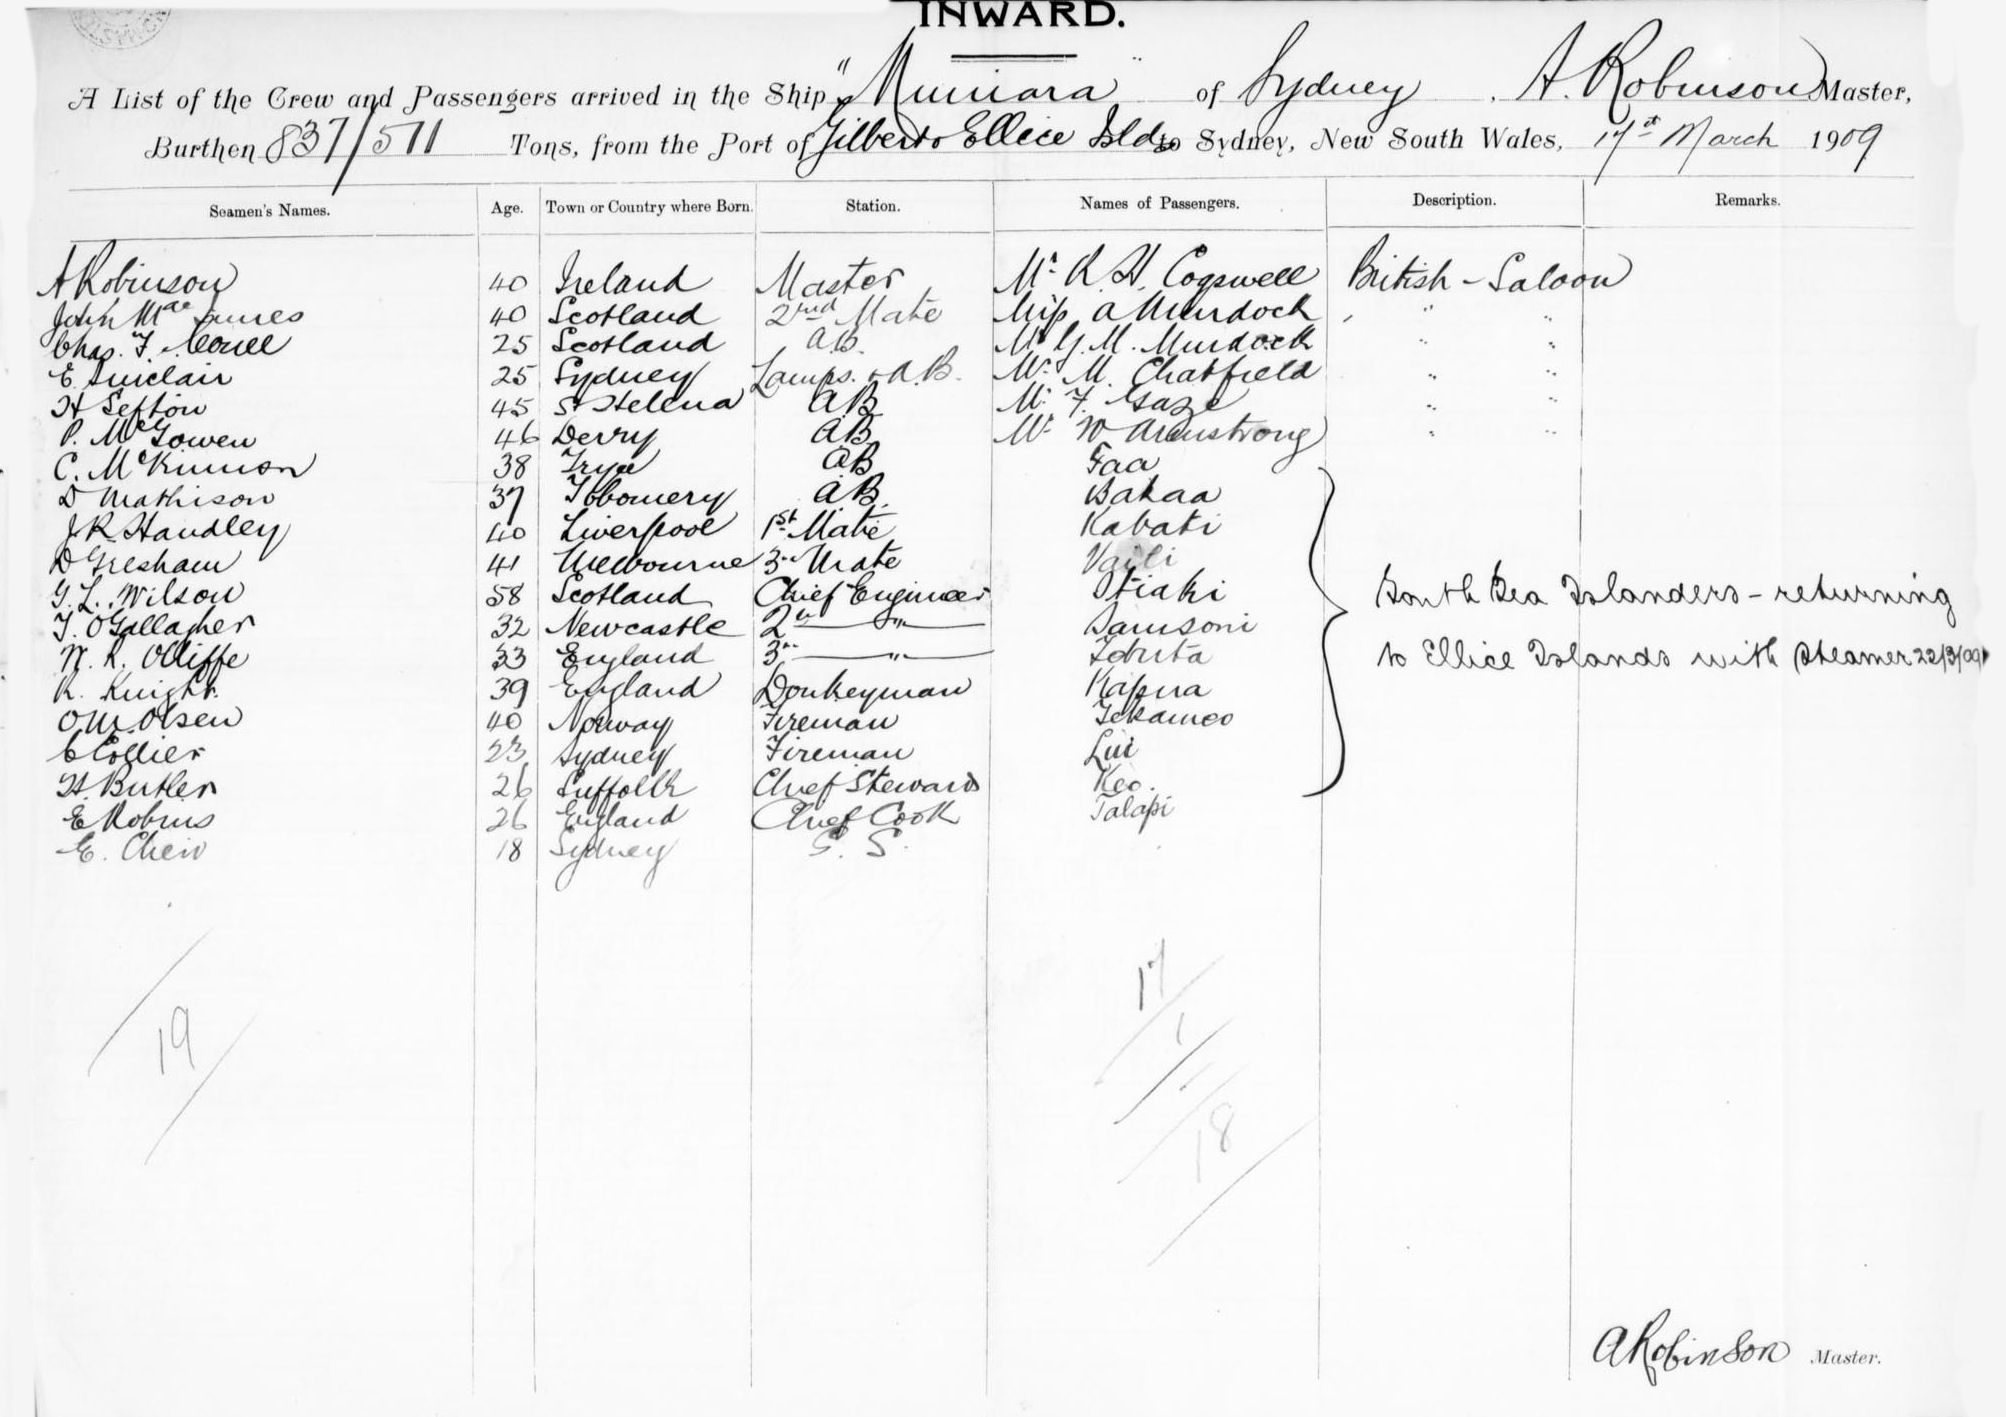 INWARD.
A List of the Crew and Passengers arrived in the Ship "Muniara" of Sydney, A. Robinson Master,
Burthen 837/511 Tons, from the Port of Gilberts Ellice Islds to Sydney, New South Wales, 17th March 1909
Seamen's Names. Age. Town or Country where Born. Station. Names of Passengers. Description. Remarks.
A Robinson 40 Ireland Master Mr R. H. Cogswell British - Saloon
John Mac Innes 40 Scotland 2nd Mate Miss A Murdock " "
Chas. F. 25 Scotland AB. Mr G. M. Murdock " "
E Sinclair 25 Sydney Lamps. & A.B. Mr M. Chatfield " "
H Sefton 45 St Helena AB Mr F. Gaze " "
P. McGowen 46 Derry AB Mr W Armstrong " "
C. McKinnon 38 AB Faa
D Mathison 37 Tobomery AB. Bakaa
J. R. Handley 40 Liverpool 1st Mate Kabati
D Gresham 41 Melbourne 3rd Mate Vaili
G. L. Wilson 58 Scotland Chief Engineer Stiaki South Sea Islanders - returning
T. O'Gallagher 32 Newcastle 2nd " Samsoni
W. R. Olliffe 33 England 3rd " Tobuta to Ellice Islands with steamer 22/3/09
R. Knight. 39 England Donkeyman Kapua
O M. Olsen 40 Norway Fireman Tekameo
C Collier 23 Sydney Fireman Lui
H. Butler 26 Suffolk Chief Steward Keo.
E Robins 26 England Chief Cook Talapi
E. Chew 18 Sydney G. S.
17
19
1
18
A Robinson Master.